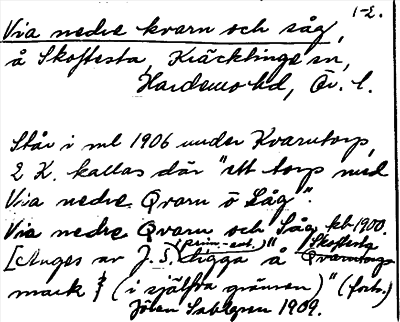 1-2.
Via nedre kvarn och såg,
å Skoftesta, Kräcklinge sn,
Hardemo hd, Ör. l.
Står i ml 1906 under Kvarntorp,
2 K. kallas där "ett torp med
Via nedre Qvarn o Såg".
Via nedre Qvarn och Såg kb 1900.
[Anges av J. S. (prim.-ant.) "ligga å Skoftesta Qvarntorps
mark (i själfva gränsen)" (forts.)
Jöran Sahlgren 1909.